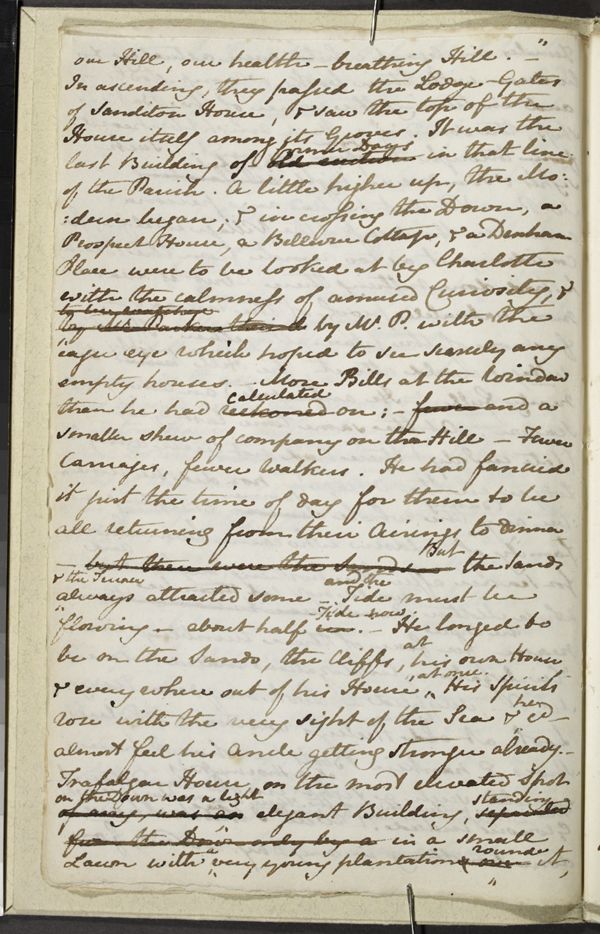 our Hill, our health-breathing Hill. -"
In ascending, they passed the Lodge-Gates
of Sanditon House, & saw the top of the
House itself among its Groves. It was the
former Days
last Building of in that line
of the Parish. A little higher up, the Mo:
:dern began, & in crossing the Down, a
Prospect House, a Bellevue Cottage, & a Denham
Place were to be looked at by Charlotte
with the calmness of amused Curiosity, &
by Mr. Parker by Mr. P. with the
eager eye which hoped to see scarcely any
empty houses. - More Bills at the Window
calculated
than he had reckoned on; - fewer and a
smaller shew of company on the Hill - Fewer
Carriages, fewer Walkers. He had fancied
it just the time of day for them to be
all returning from their Airings to dinner
But
- but there were the Sands the Sands
& the Terrace and the
always attracted some - Tide must be
Tide now
flowing - about half in. - He longed to
at
be on the Sands, the Cliffs, his own House
at once.
& every where out of his House. His Spirits
he
rose with the very sight of the Sea & cd
almost feel his Ancle getting stronger already. -
Trafalgar House on the most elevated Spot
on the Down was a light
of any, was an elegant Building, standing
from the Down only by a in a small
Lawn with a very young plantation round it,